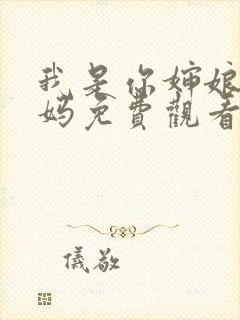 我是你婶娘
妈免費觀看
儀敬